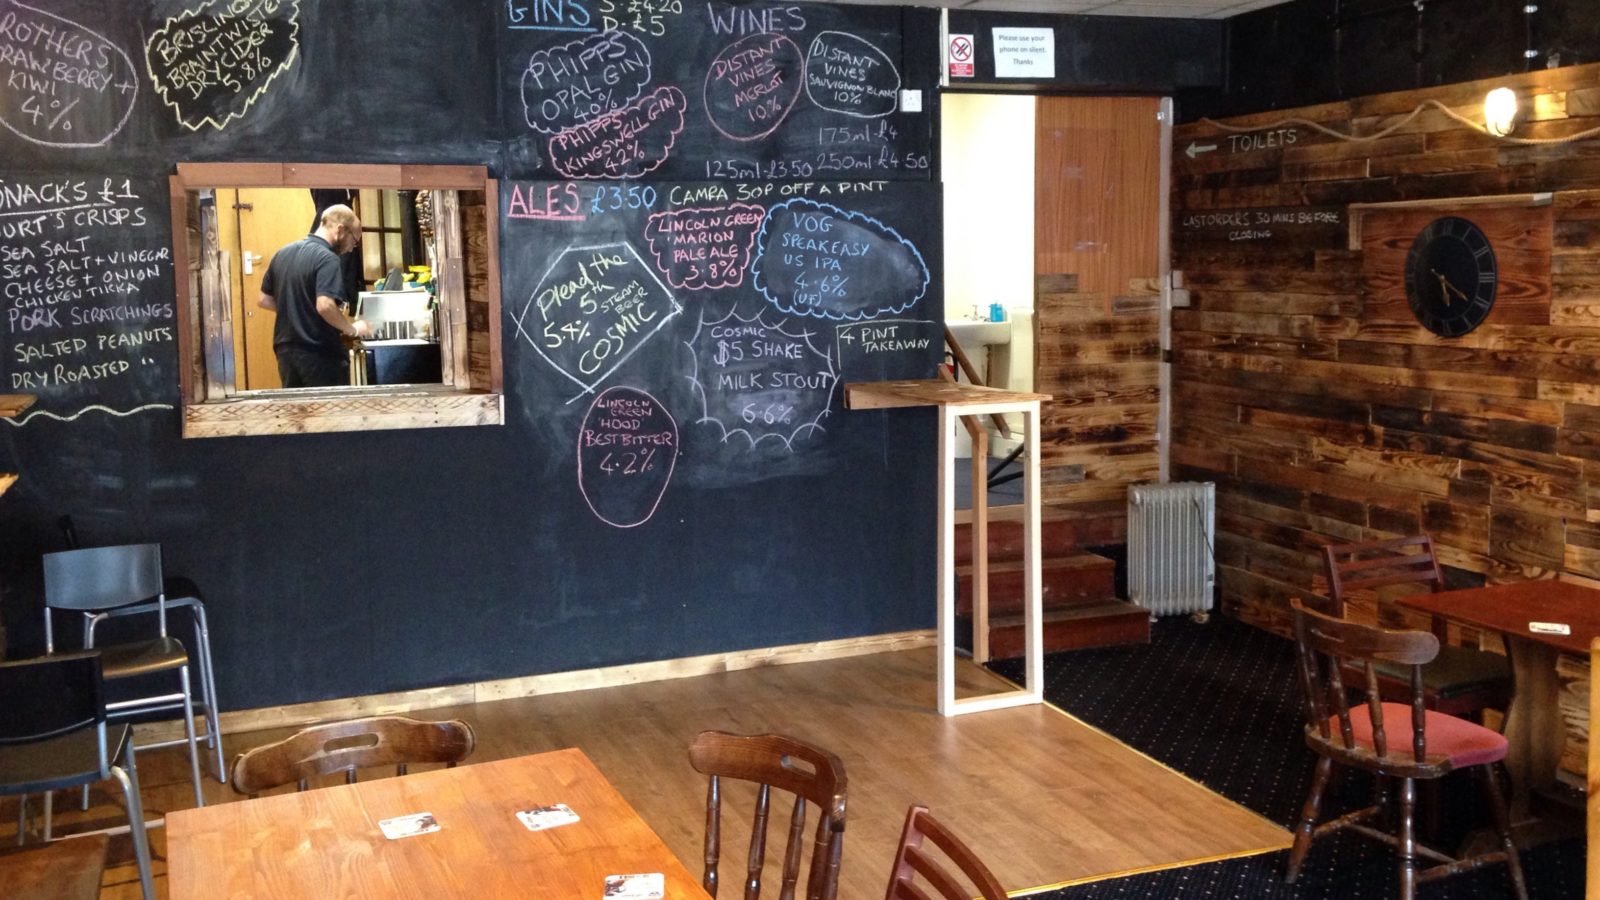 ROTHERS
RAWBERRY +
KIWI
4%
BRISLING
BRAINTWISTER
DRY CIDER
5.8%
GINS S-£4.20
D-£5
PHIPPS
OPAL GIN
40%
PHIPPS
KINGSWELL GIN
42%
WINES
DISTANT
VINES
MERLOT
10%
DISTANT
VINES
SAUVIGNON BLANC
10%
175ml-£4
125ml-£3.50 250ml-£4.50
Please use your
phone on silent.
Thanks
← TOILETS
LAST ORDERS 30 MINS BEFORE
CLOSING
SNACK'S £1
BURT'S CRISPS
SEA SALT
SEA SALT + VINEGAR
CHEESE + ONION
CHICKEN TIKKA
PORK SCRATCHINGS
SALTED PEANUTS
DRY ROASTED "
ALES £3.50 CAMRA 30P OFF A PINT
LINCOLN GREEN
'MARION'
PALE ALE
3.8%
VOG
SPEAKEASY
US IPA
4.6%
(UF)
Plead the
5th STEAM
BEER
5.4%
COSMIC
COSMIC
$5 SHAKE
MILK STOUT
6.6%
4 PINT
TAKEAWAY
LINCOLN
GREEN
'HOOD'
BEST BITTER
4.2%